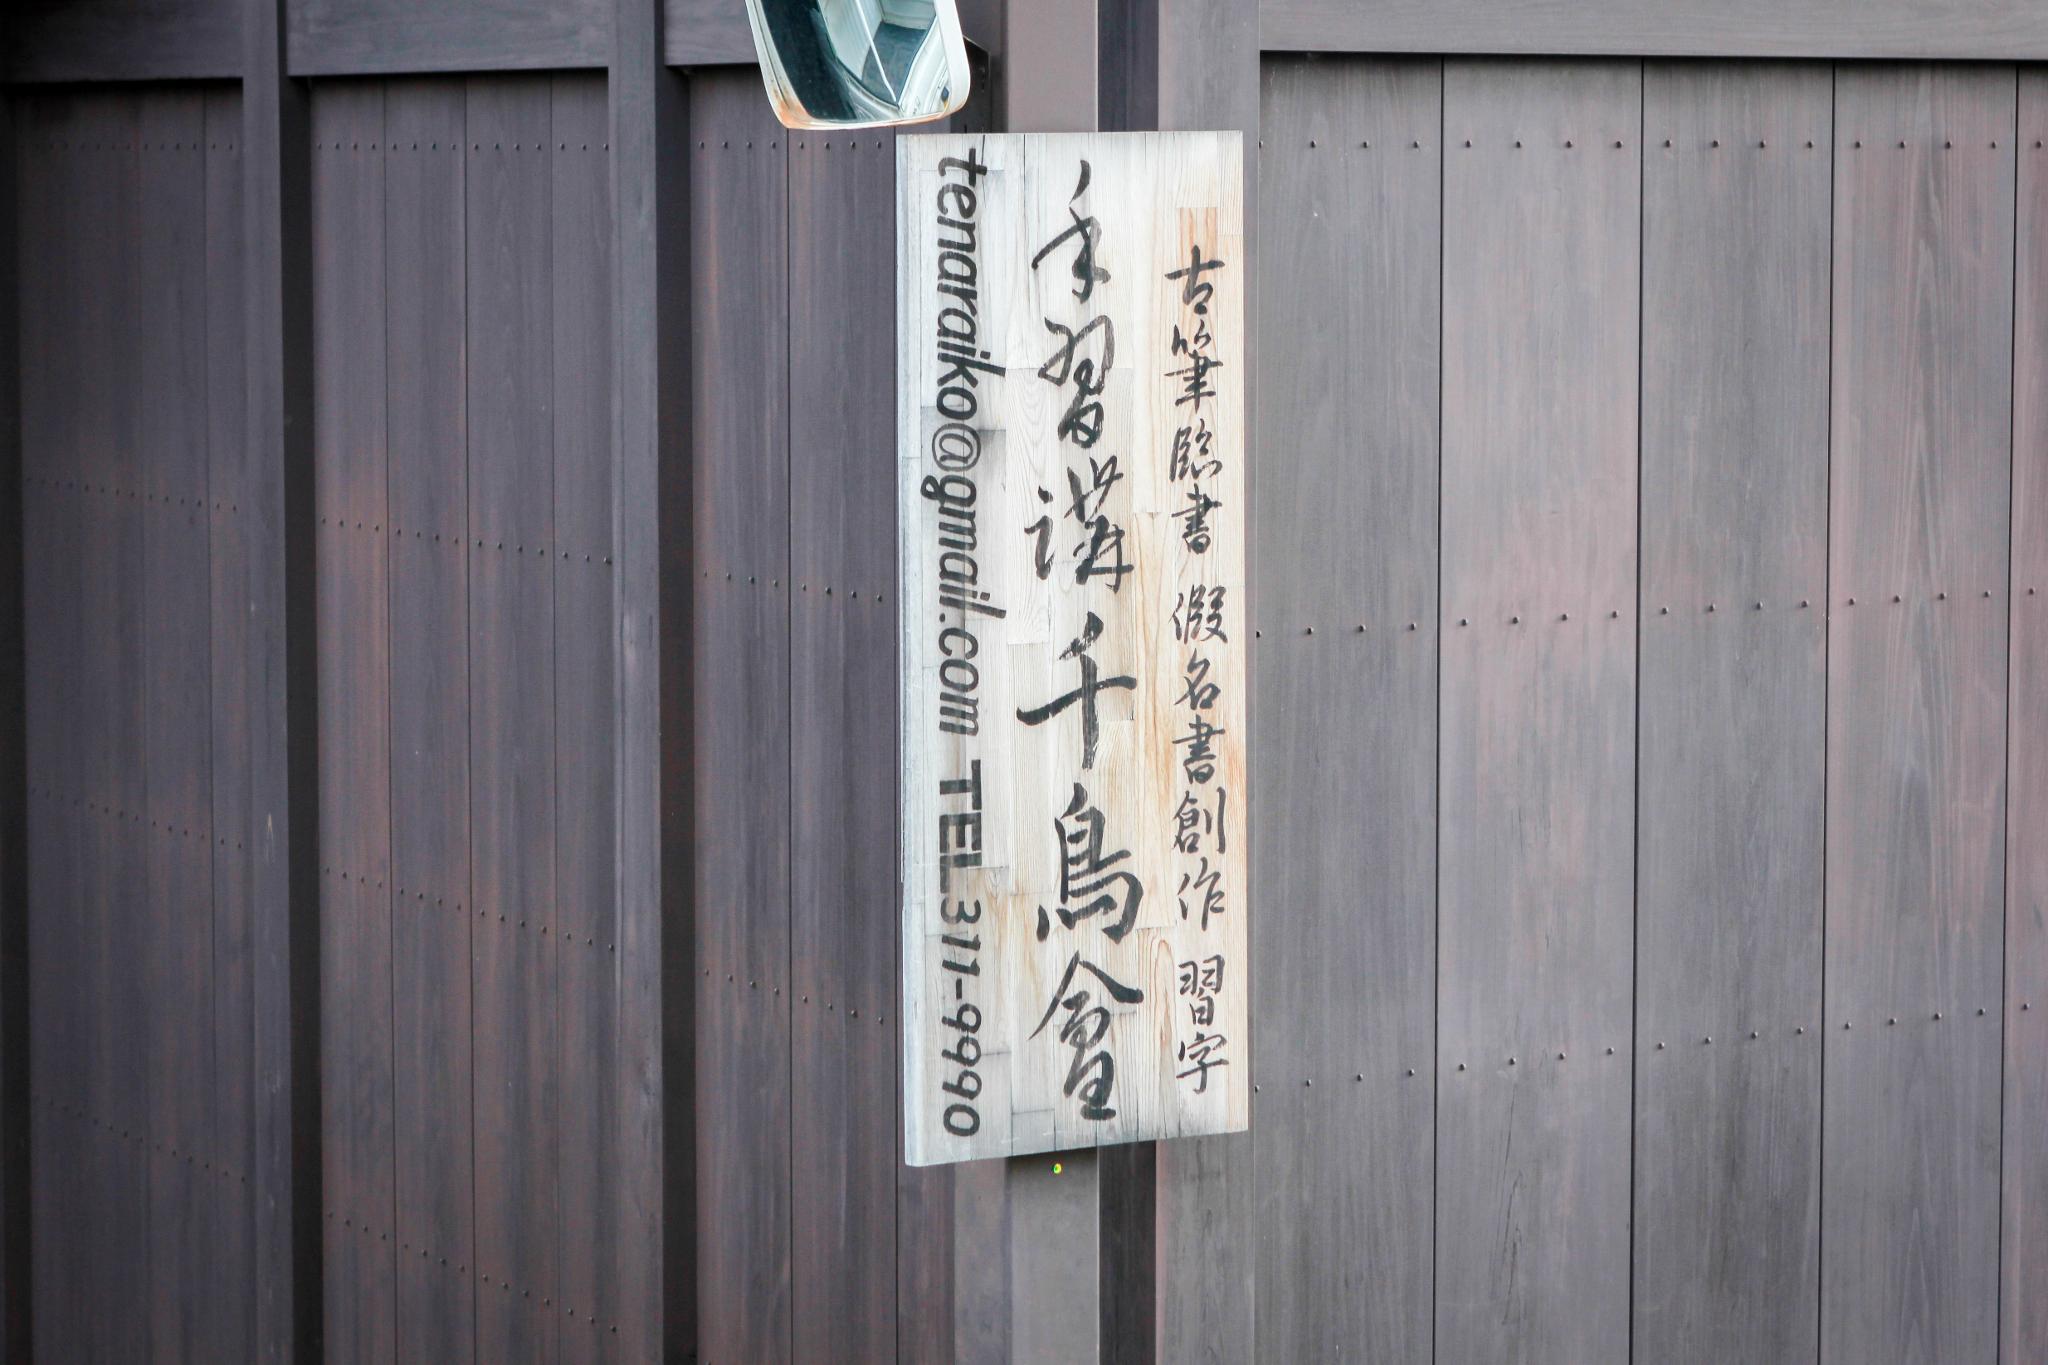 古筆臨書 假名書創作 習字
手習講千鳥會
tenaraiko@gmail.com TEL311-9990